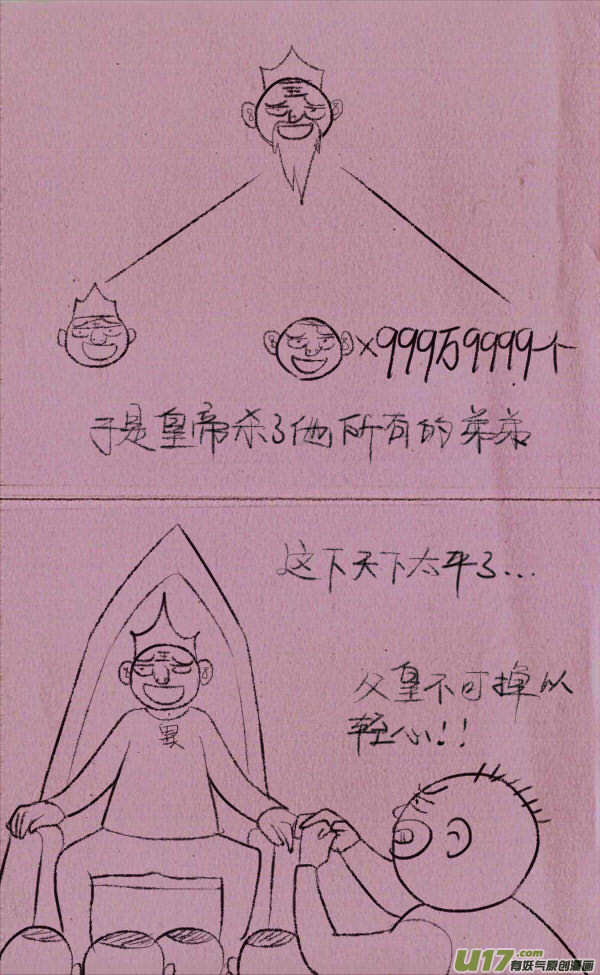 ×999万9999个
于是皇帝杀了他所有的弟弟
这下天下太平了...
父皇不可掉以
轻心!!
U17.com
有妖气原创漫画